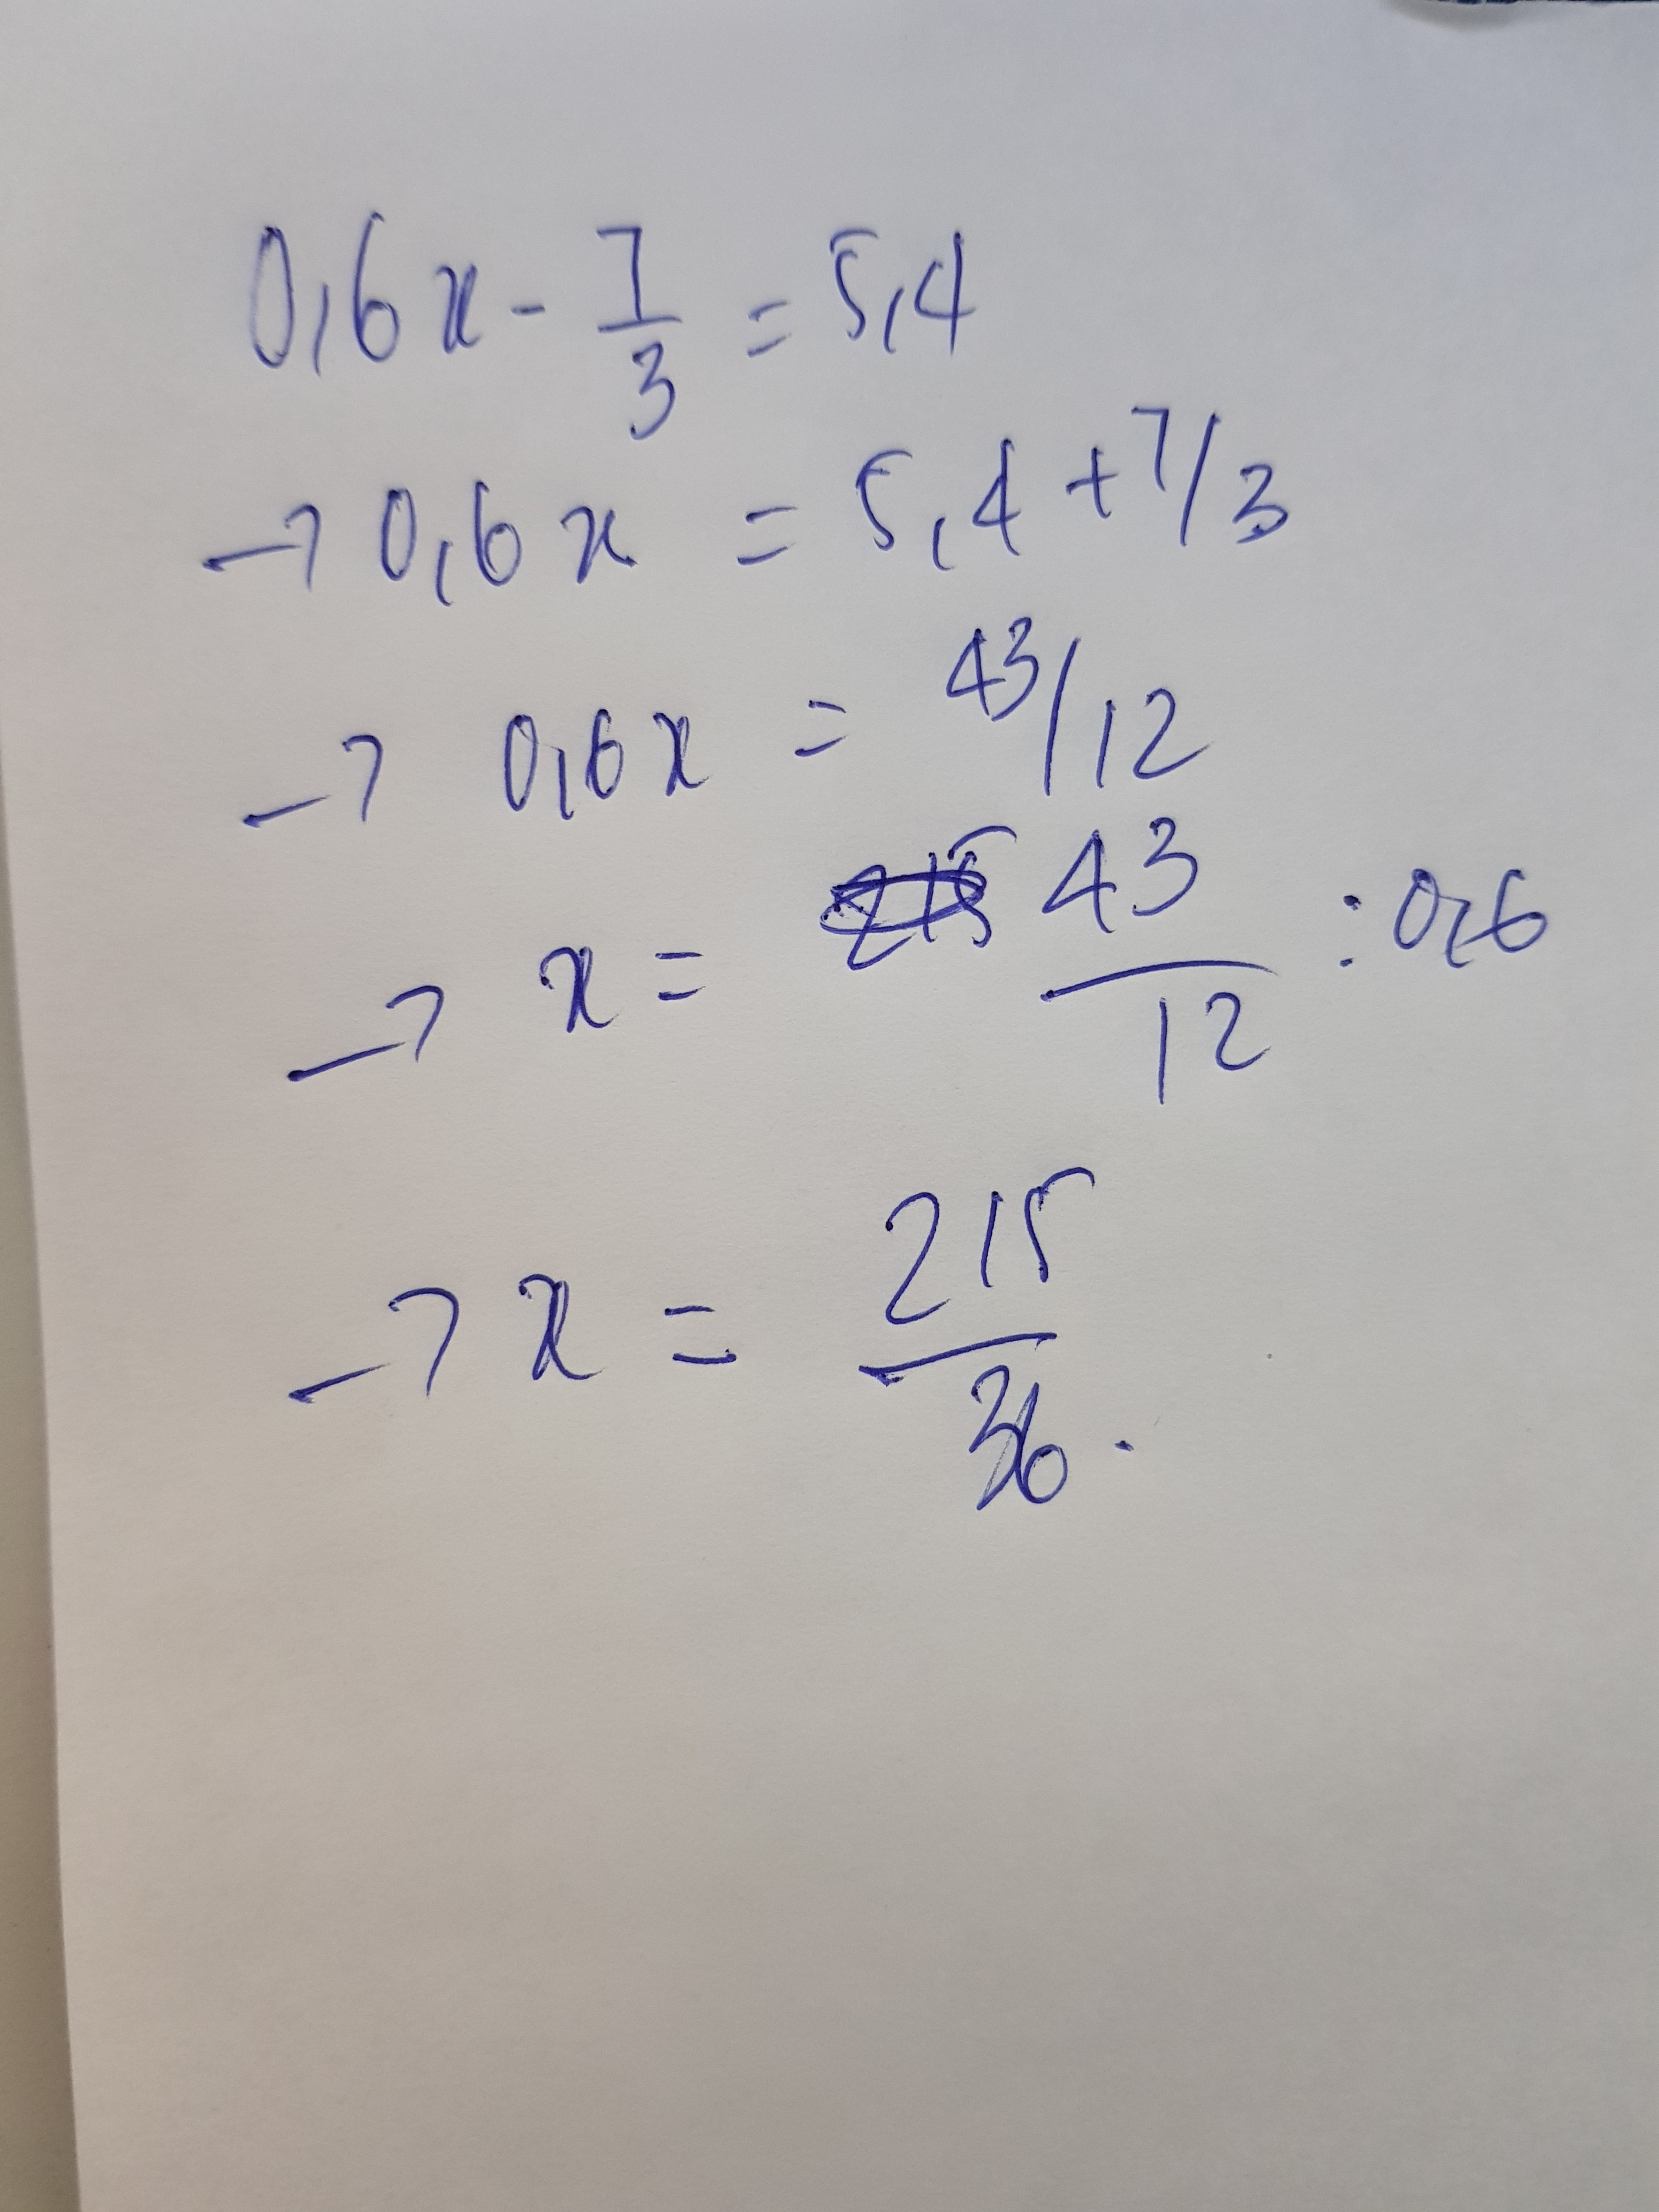 0,6x - 7/3 = 5,4
→ 0,6x = 5,4 + 7/3
→ 0,6x = 43/12
→ x = 43/12 : 0,6
→ x = 215/36.